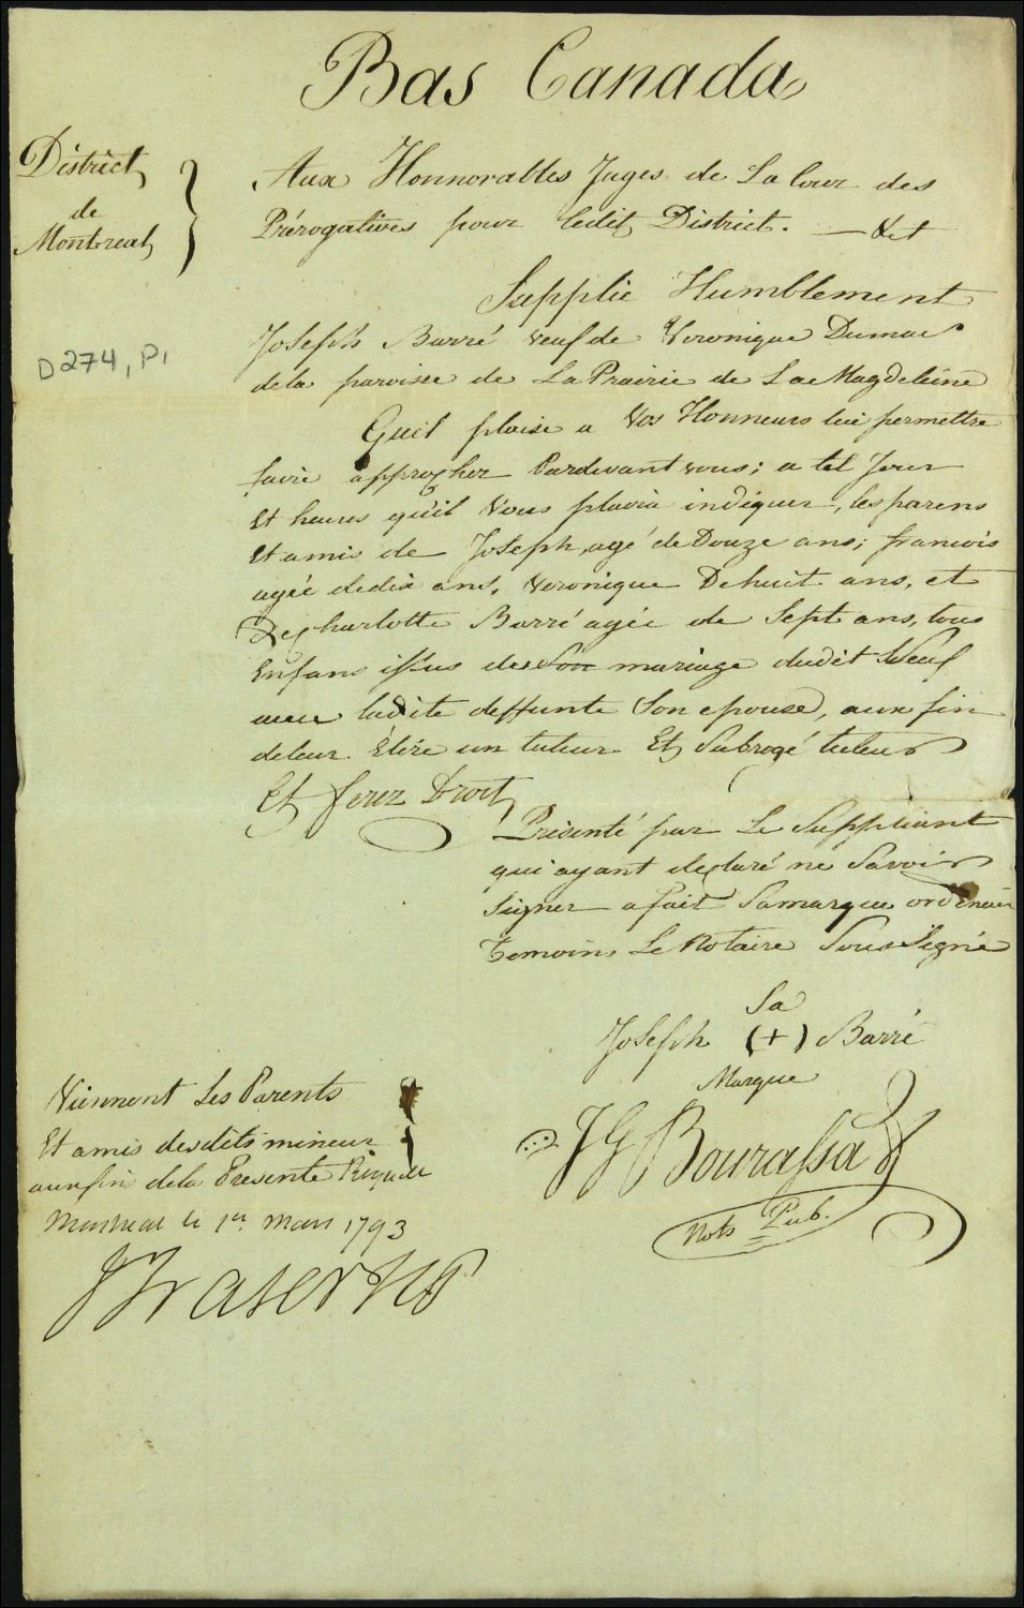 Bas Canada
District
de
Montreal
Aux Honnorables Juges de La Cour des
Prérogatives pour ledit District. — &ct
Supplie Humblement
Joseph Barré veuf de Veronique Dumas
dela paroisse de La Prairie de La Magdeleine
D274, P1
Quil plaise a Vos Honneurs lui permettre
faire approcher Pardevant vous; a tel Jour
Et heures quil Vous plaira indiquer, les parens
Et amis de Joseph, agé de Douze ans; francois
agée dedix ans, Veronique Dehuit ans, et
De Charlotte Barré agée de Sept ans, tous
Enfans issus de son mariage dudit Veuf
avec ladite deffunte Son epouse, aux fin
deleur Elire un tuteur Et Subrogé tuteur
Et ferez Droit
Présenté par Le Suppliant
qui ayant declaré ne Savoir
Signer a fait Samarque ordinaire
Temoins Le Notaire Soussigné
Sa
Joseph (+) Barré
Marque
JG Bourassa
Nots Pub.
Viennent Les Parents
Et amis desdits mineur
aux fin dela Presente Requete
Montreal le 1er mars 1793
JFraser